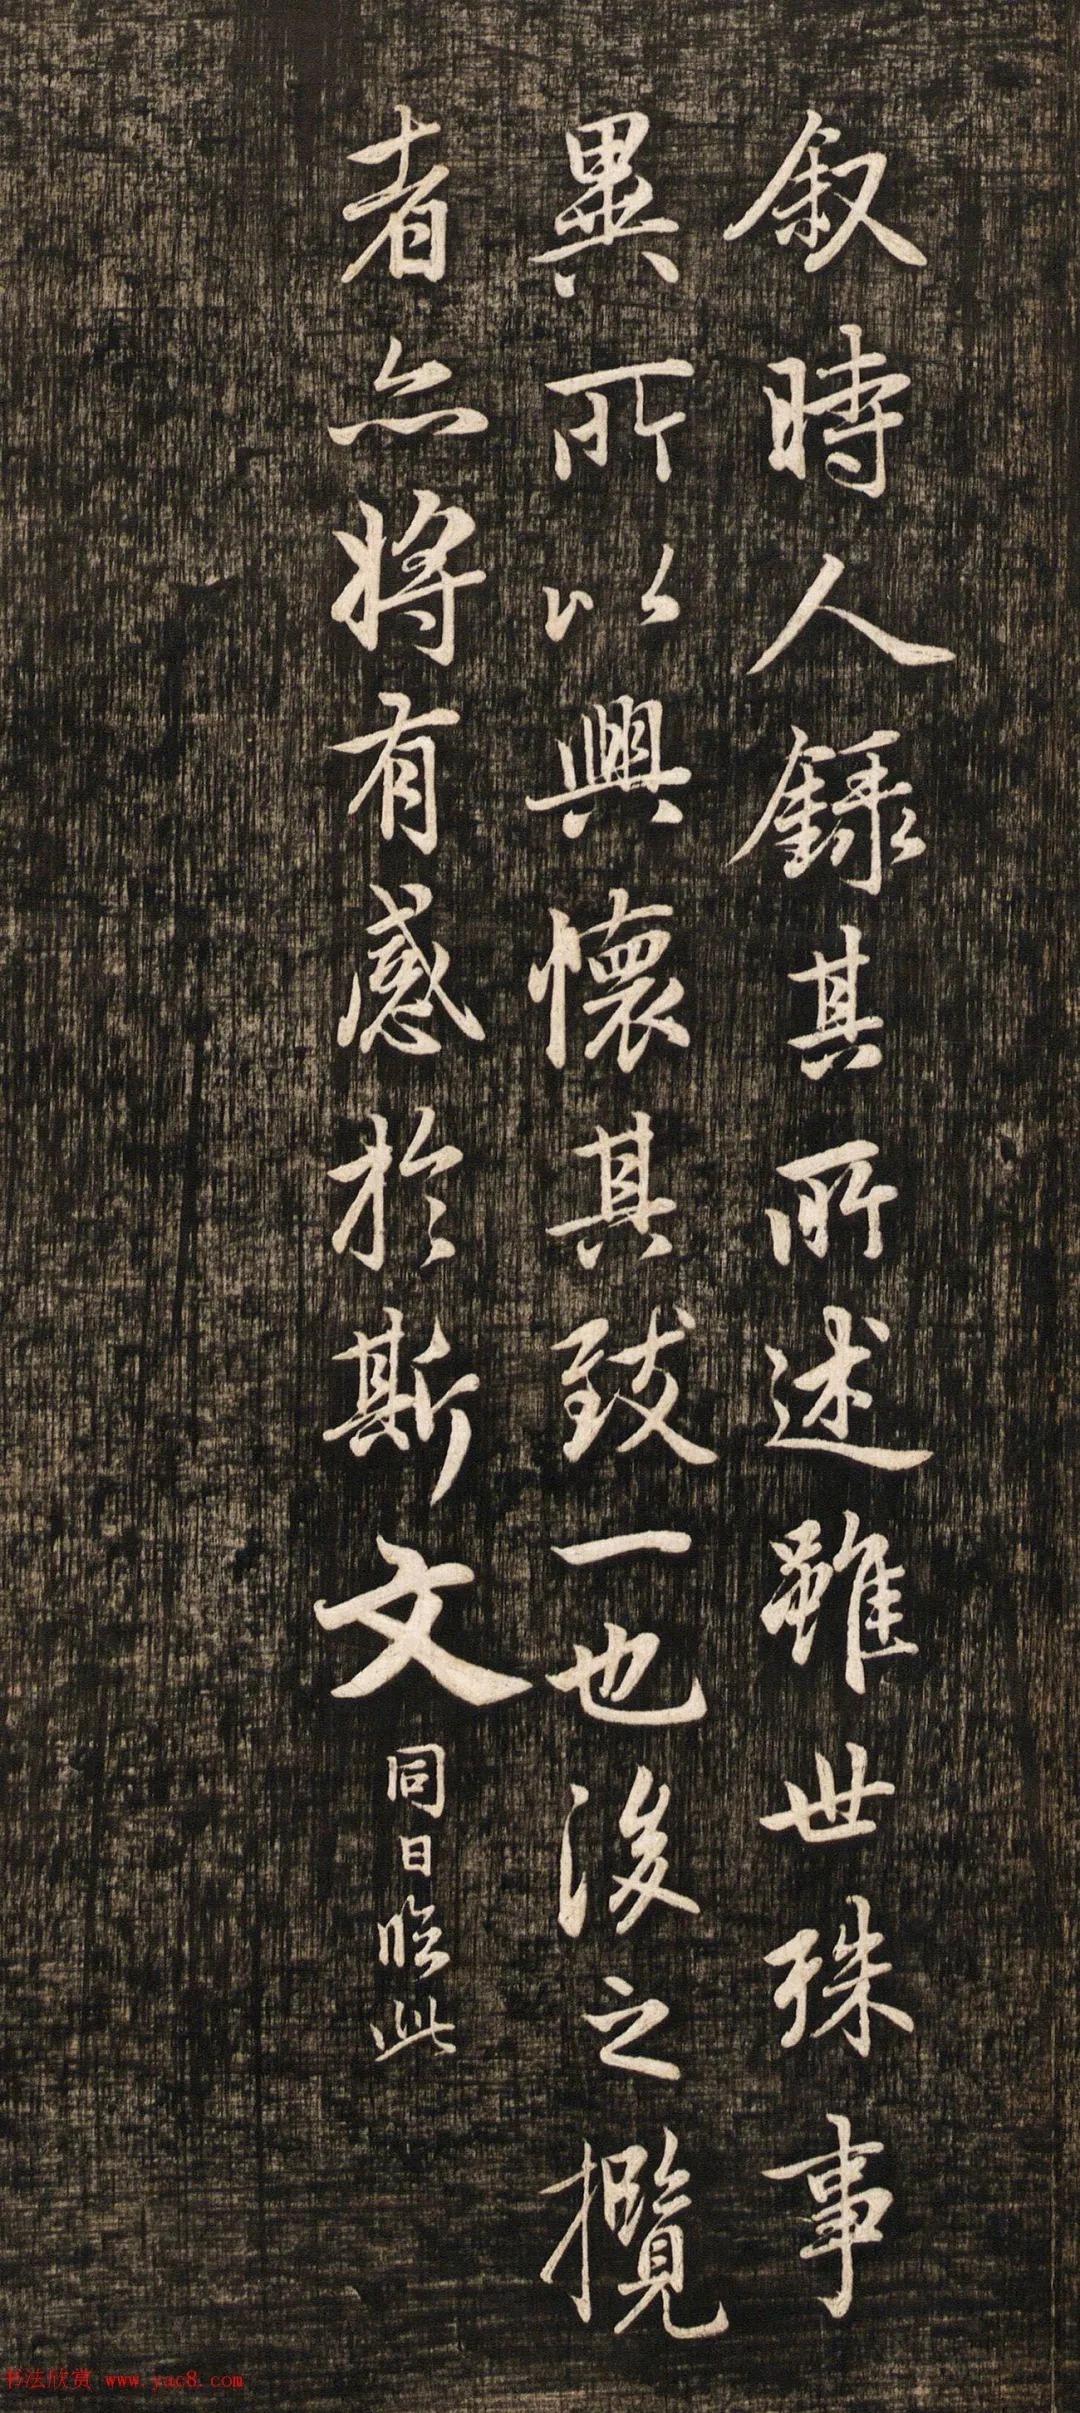 叙時人錄其所述雖世殊事
異所以興懷其致一也後之攬
者亦將有感於斯文
同日臨此
书法欣赏 www.yac8.com